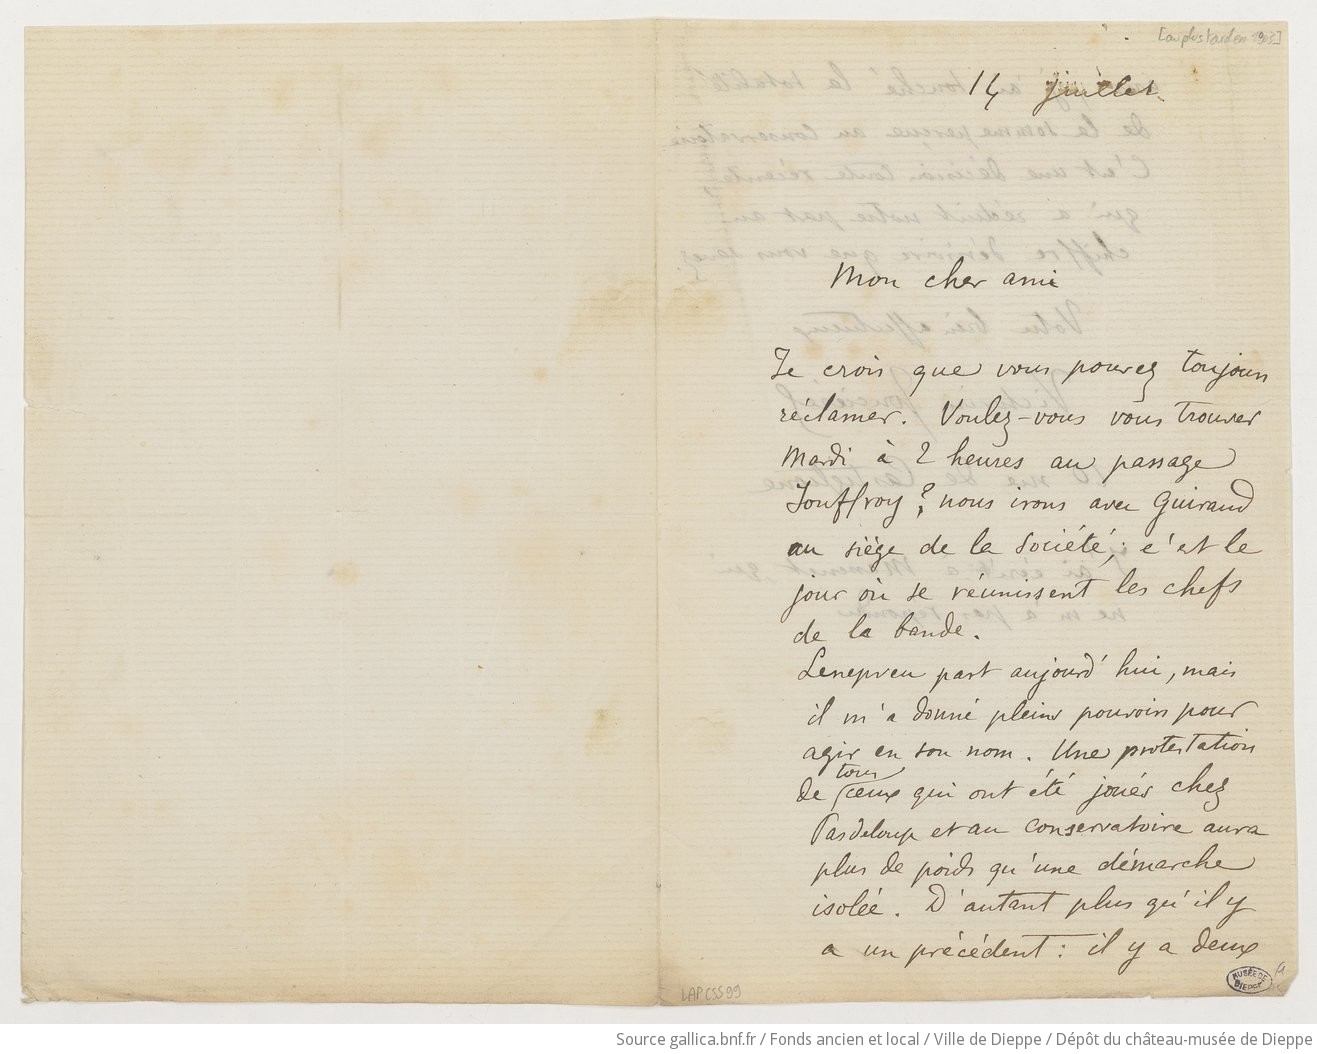 [au plus tard en 1903]
14 juillet
Mon cher ami
Je crois que vous pouvez toujours
réclamer. Voulez-vous vous trouver
mardi à 2 heures au passage
Jouffroy ? nous irons avec Guiraud
au siège de la Société ; c'est le
jour où se réunissent les chefs
de la bande.
Lenepveu part aujourd'hui, mais
il m'a donné pleins pouvoirs pour
agir en son nom. Une protestation
tous
de ceux qui ont été joués chez
Pasdeloup et au conservatoire aura
plus de poids qu'une démarche
isolée. D'autant plus qu'il y
a un précédent : il y a deux
MUSÉE DE
DIEPPE
LAP CSS 99
Source gallica.bnf.fr / Fonds ancien et local / Ville de Dieppe / Dépôt du château-musée de Dieppe